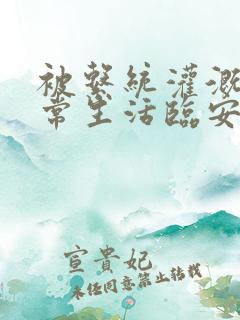 被系統灌溉
常生活臨安
宣貴妃
未任同意禁止转载